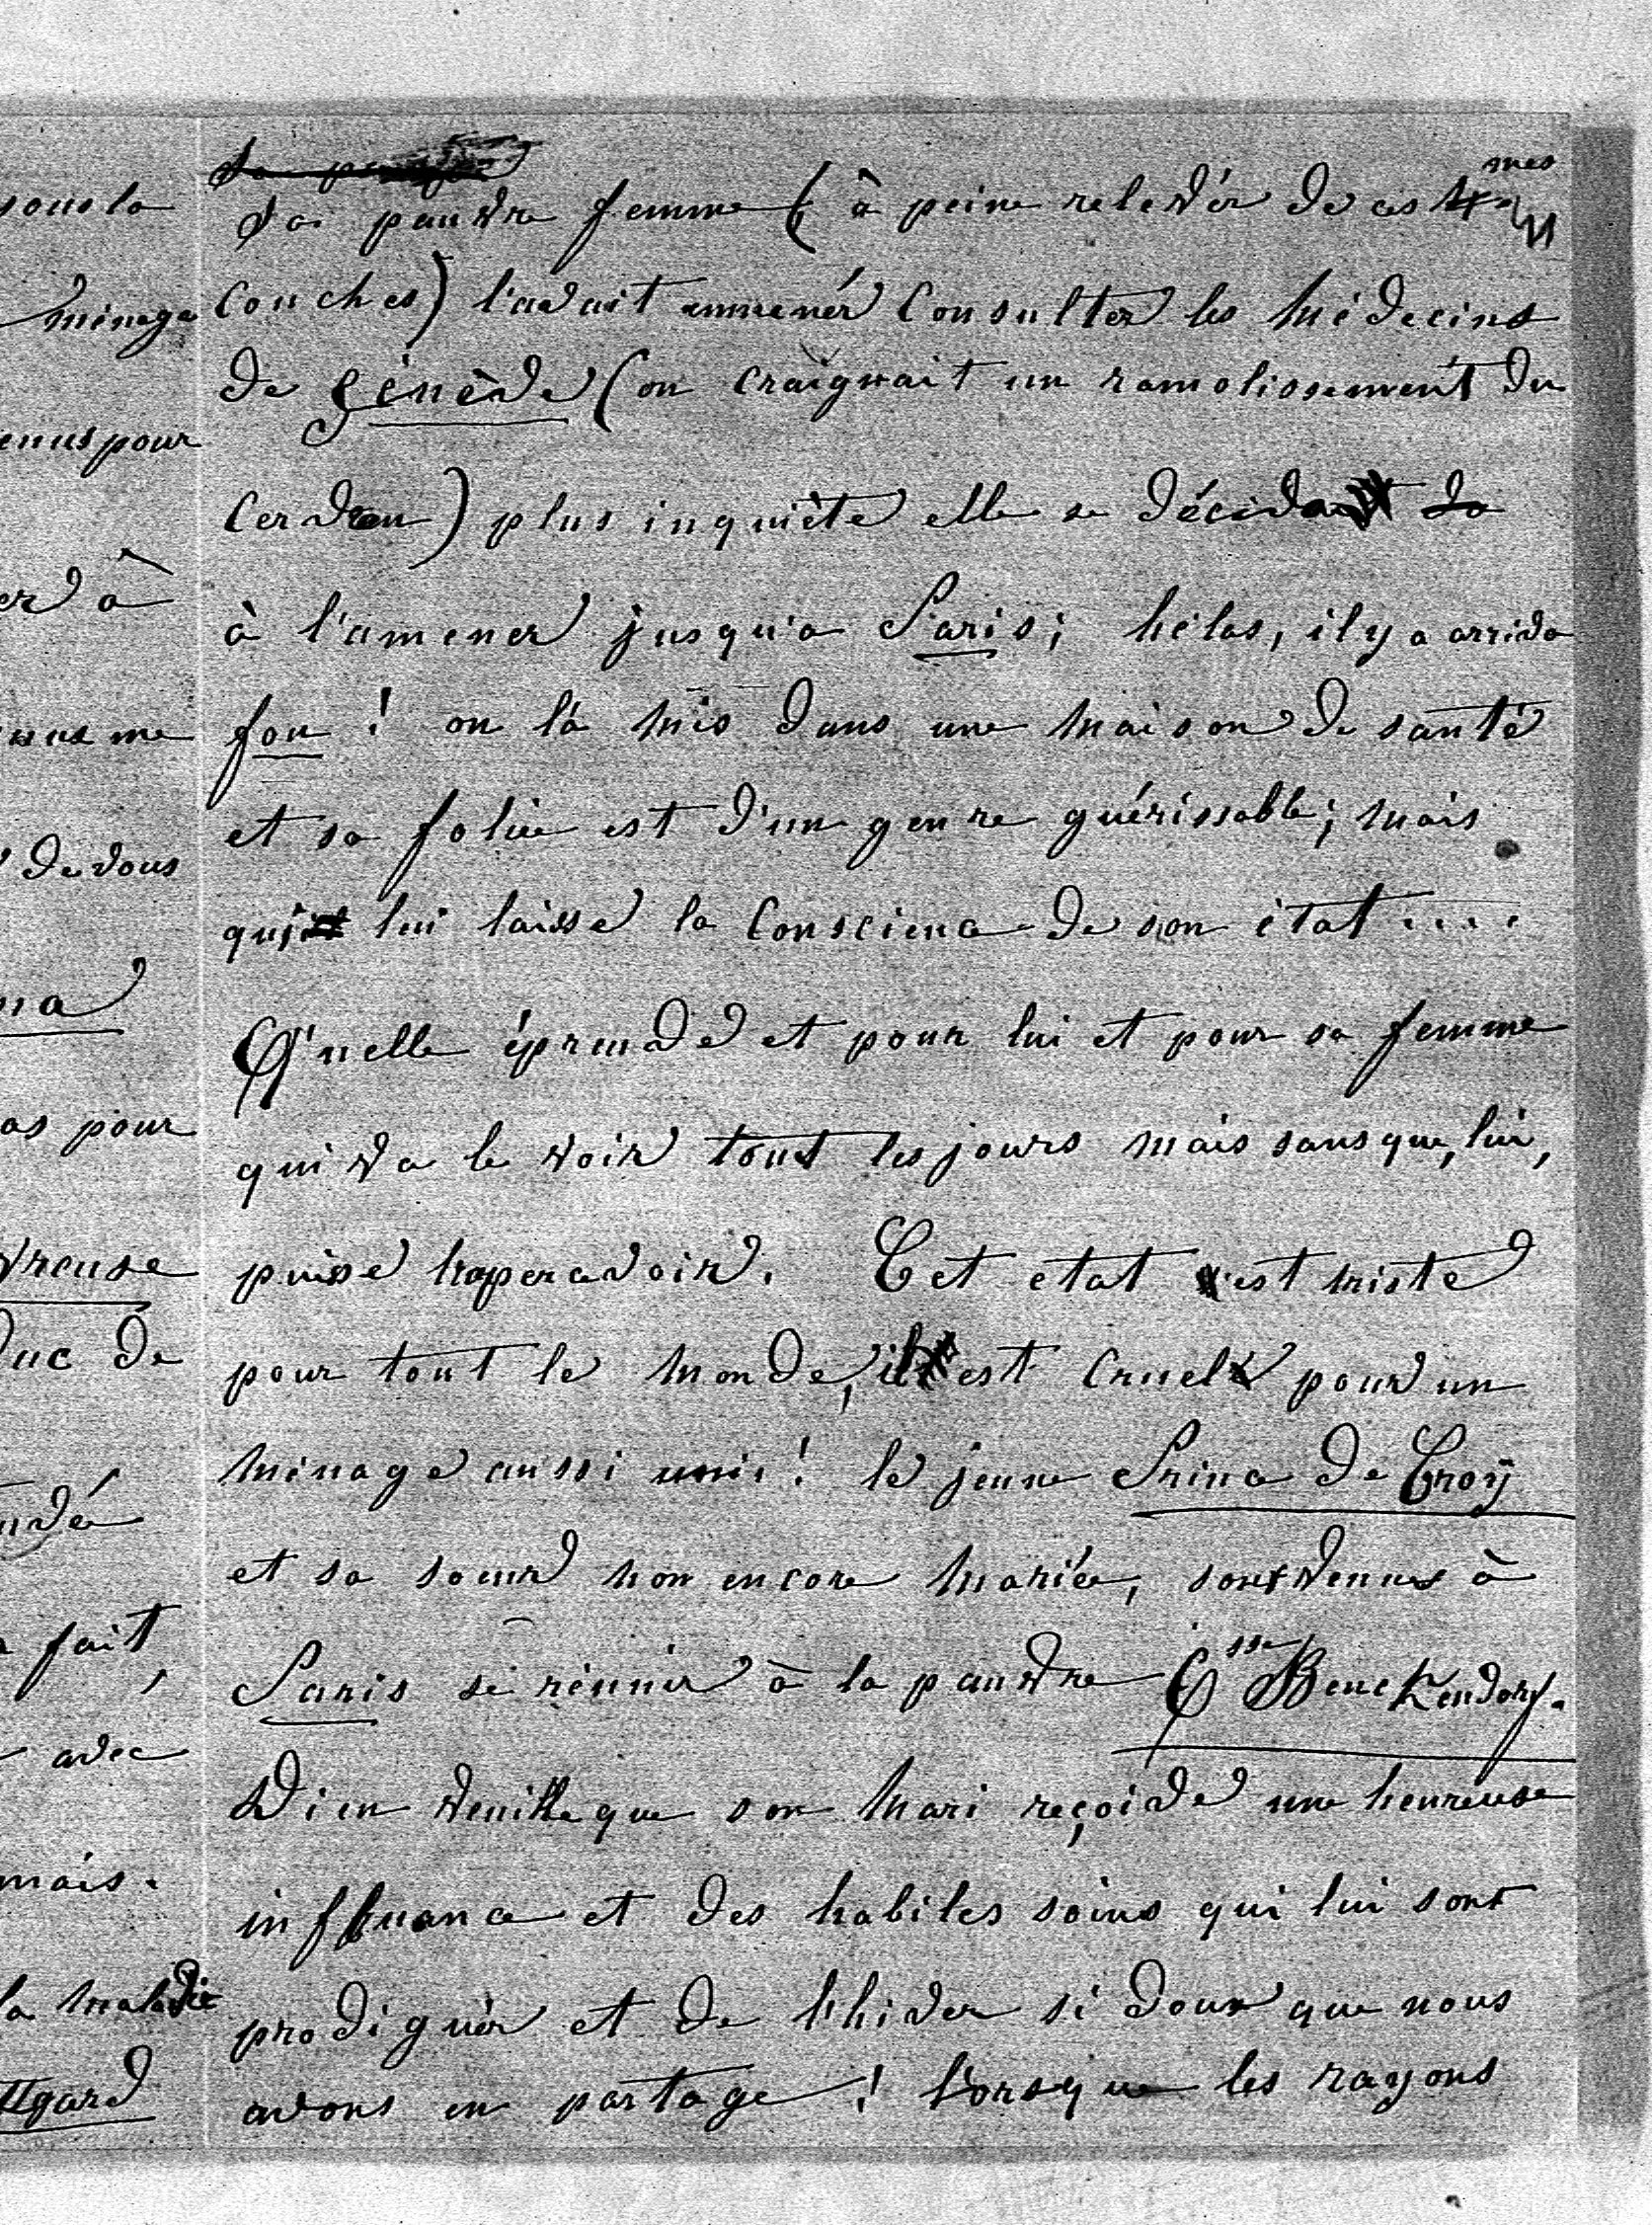 sous la
ménage
enus pour
er à
vous me
de vous
na
as pour
vreuse
Duc de
ndé
fait,
avec
mais.
la maladie
ttgard
Sa pauvre femme (à peine relevée de ces 4mes
couches) l'avait emmené consulter les médecins
de Génève (on craignait un ramolissement du
cerveau) plus inquiète elle se décida
à l'amener jusqu'a Paris; hélas, il y a arriva
fou ! on l'a mis dans une maison de santé
et sa folie est d'un genre guérissable; mais
qui lui laisse la conscience de son état ....
Qu'elle épreuve et pour lui et pour sa femme
qui va le voir tout les jours mais sans que, lui,
puisse l'apercevoir. Cet etat est triste
pour tout le monde, il est cruel pour un
ménage aussi uni ! le jeune Prince de Croÿ
et sa soeur non encore mariée, sont venues à
Paris se réunir à la pauvre Csse Benckendorf.
Dieu veuille que son mari reçoive une heureuse
influance et des habiles soins qui lui sont
prodigués et de l'hiver si doux que nous
avons en partage ! Lorsque les rayons